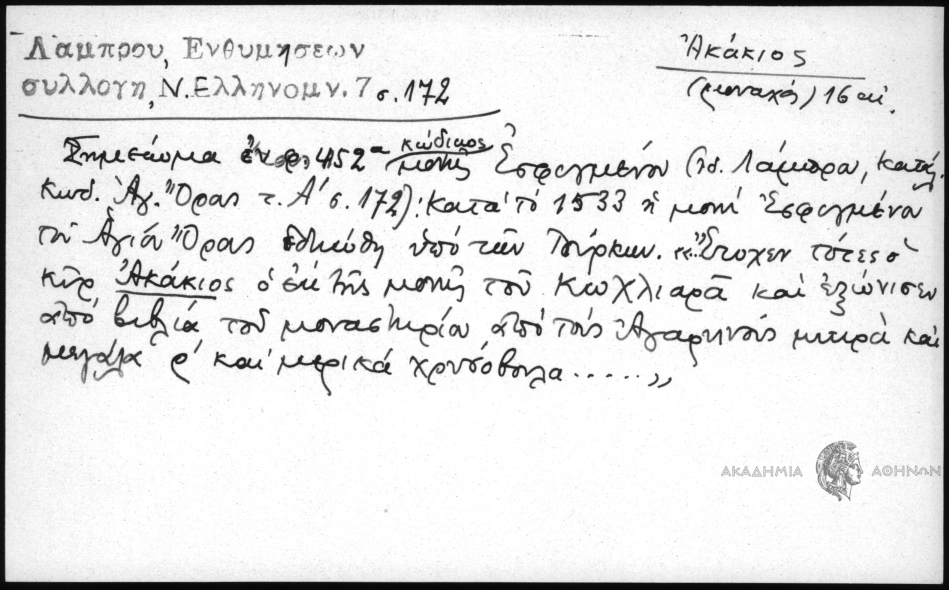 Λαμπρου, Ενθυμησεων
συλλογη, Ν. Ελληνομν. 7 σ. 172
Ἀκάκιος
(μοναχός) 16 αἰ.
Σημείωμα 452α κώδικος μονῆς Ἐσφιγμένου (ἰδ. Λάμπρου, Κατάλ.
κωδ. Ἁγ. Ὄρους τ. Α΄ σ. 172): Κατὰ τὸ 1533 ἡ μονὴ Ἐσφιγμένου
τοῦ Ἁγίου Ὄρους ἐδῃώθη ὑπὸ τῶν Τούρκων. «Ἔτυχεν τότες ὁ
κῦρ Ἀκάκιος ὁ ἐκ τῆς μονῆς τοῦ Κοχλιαρᾶ καὶ ἐξώνισεν
ἀπὸ βιβλία τοῦ μοναστηρίου ἀπὸ τοὺς Ἀγαρηνοὺς μικρὰ καὶ
μεγάλα ρ΄ καὶ μερικὰ χρυσόβουλα......»
ΑΚΑΔΗΜΙΑ ΑΘΗΝΩΝ